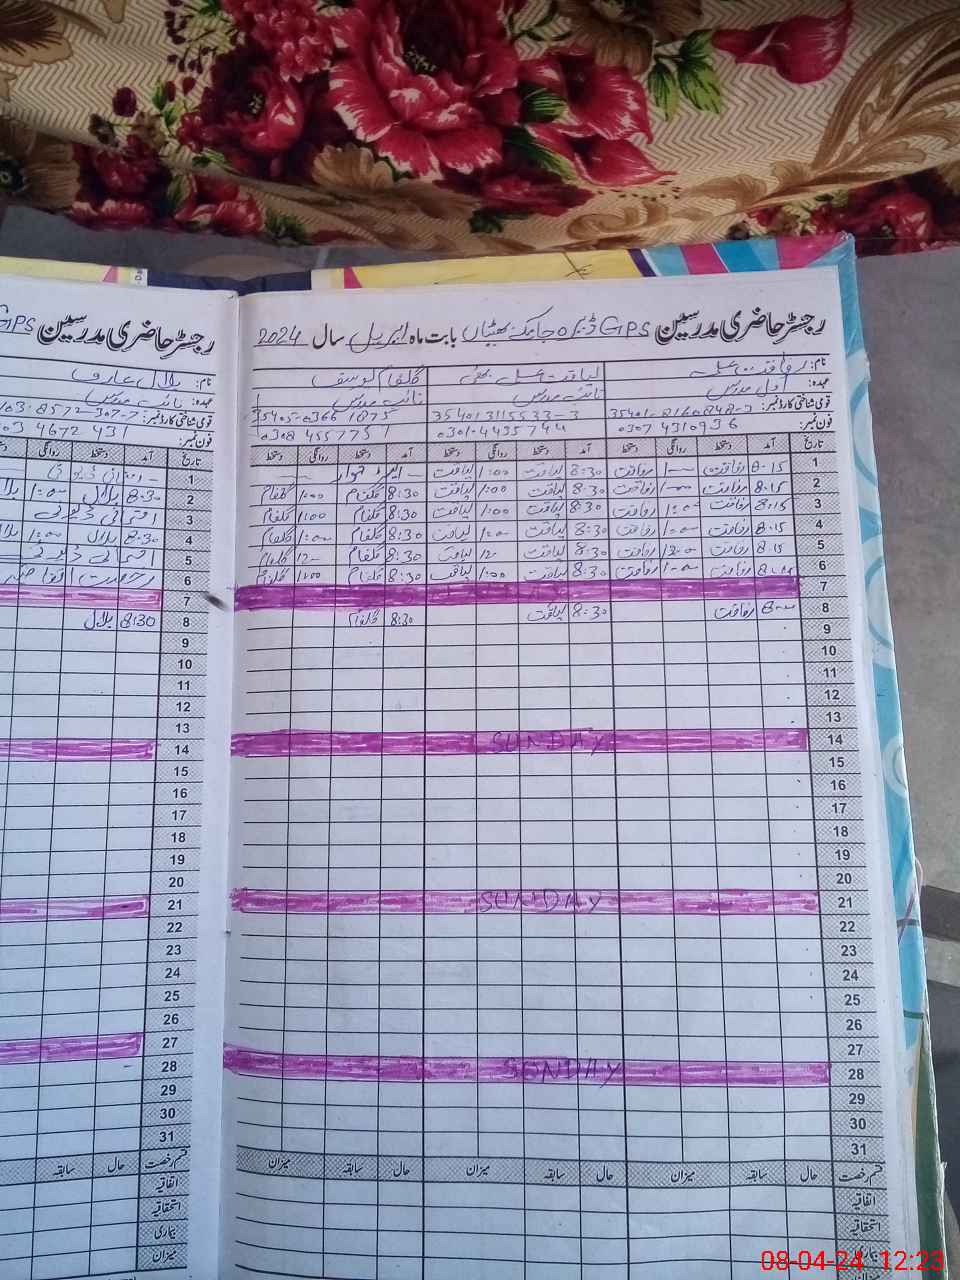 رجسٹر حاضری مدرسین GPS ڈیرہ جانکے بھٹیاں بابت ماہ اپریل سال 2024
نام: رفاقت علی لیاقت علی بھٹی گلفام یوسف
عہدہ: اول مدرس نائب مدرس نائب مدرس
قومی شناختی کارڈ نمبر: 35401-8160848-3 35401 3115533-3 35405-0366 1875
فون نمبر: 0307 4310936 0301-4435744 0308 4557751
تاریخ آمد دستخط روانگی دستخط آمد دستخط روانگی دستخط آمد دستخط روانگی دستخط
1 8.15 رفاقت 1:00 رفاقت 8:30 لیاقت 1:00 لیاقت
2 8.15 رفاقت 1:00 رفاقت 8:30 لیاقت 1:00 لیاقت 8:30 گلفام 1:00 گلفام
3 8.15 رفاقت 1:00 رفاقت 8:30 لیاقت 1:00 لیاقت 8:30 گلفام 1:00 گلفام
4 8.15 رفاقت 1:00 رفاقت 8:30 لیاقت 1:00 لیاقت 8:30 گلفام 1:00 گلفام
5 8.15 رفاقت رفاقت 8:30 لیاقت 12- لیاقت 8:30 گلفام 12- گلفام
6 رفاقت 1:00 رفاقت 8:30 لیاقت 1:00 لیاقت 8:30 گلفام 1:00 گلفام
7
8 رفاقت 8:30 لیاقت 8:30 گلفام
9
10
11
12
13
14 SUNDAY
15
16
17
18
19
20
21 SUNDAY
22
23
24
25
26
27
28 SUNDAY
29
30
31
قسم رخصت حال سابقہ میزان حال سابقہ میزان حال سابقہ میزان
اتفاقیہ
استحقاقیہ
بیماری
میزان
رجسٹر حاضری مدرسین GPS
نام: بلال عارف
عہدہ: نائب مدرس
قومی شناختی کارڈ نمبر: 8572307-7
فون نمبر: 4672 431
تاریخ آمد دستخط روانگی دستخط
1
2 8:30 بلال 1:00
3
4 8:30 بلال 1:00
5
6
7
8 8:30 بلال
9
10
11
12
13
14
15
16
17
18
19
20
21
22
23
24
25
26
27
28
29
30
31
قسم رخصت حال سابقہ
اتفاقیہ
استحقاقیہ
بیماری
میزان
08-04-24 12:23